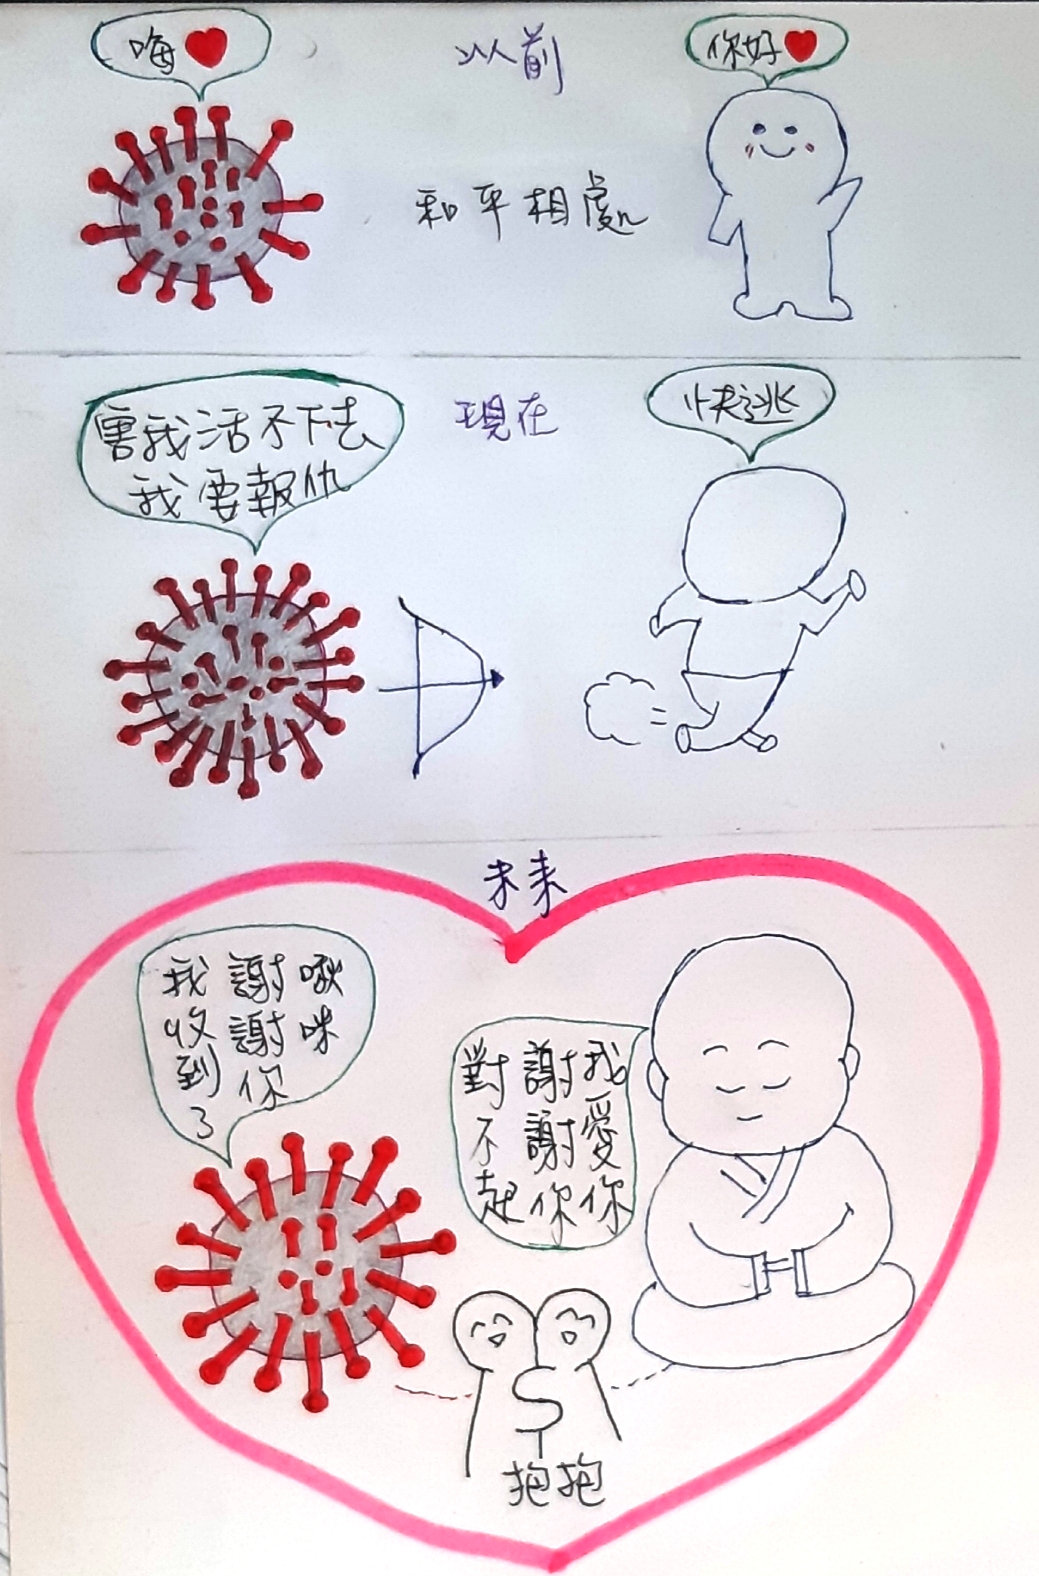 嗨
以前
你好
和平相處
現在
害我活不下去
我要報仇
快逃
未来
啾咪
謝謝你
我收到了
我愛你
謝謝你
對不起
抱抱